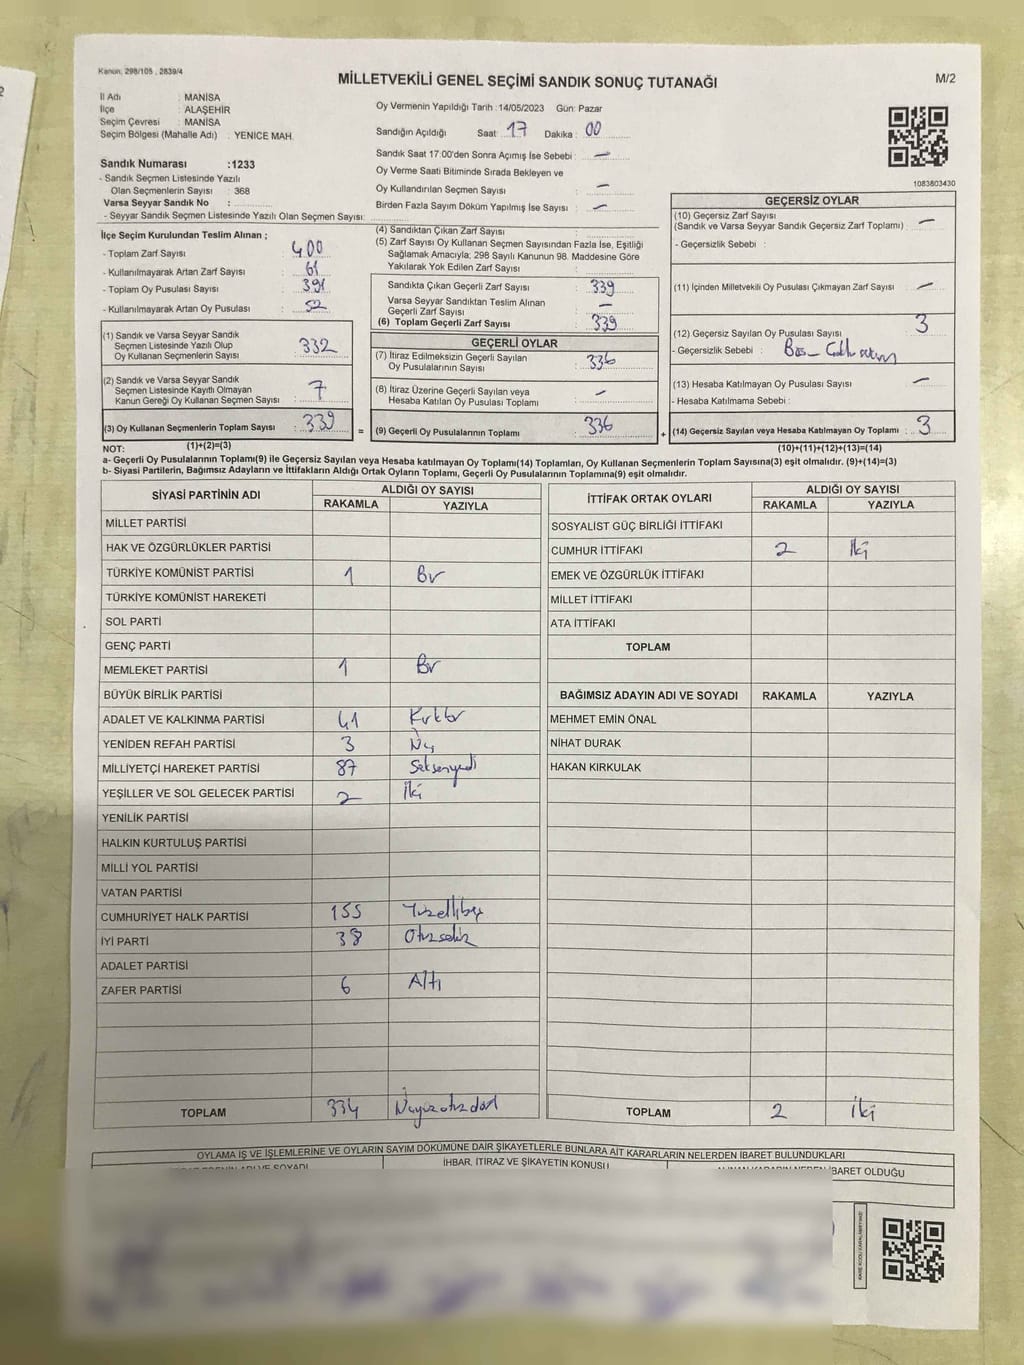 Kanun: 298/105 , 2839/4
MİLLETVEKİLİ GENEL SEÇİMİ SANDIK SONUÇ TUTANAĞI
M/2
İl Adı : MANİSA
İlçe : ALAŞEHİR
Seçim Çevresi : MANİSA
Seçim Bölgesi (Mahalle Adı) : YENICE MAH.
Oy Vermenin Yapıldığı Tarih :14/05/2023 Gün: Pazar
Sandığın Açıldığı Saat : 17 Dakika : 00
Sandık Saat 17:00'den Sonra Açımış İse Sebebi : —
Oy Verme Saati Bitiminde Sırada Bekleyen ve
Oy Kullandırılan Seçmen Sayısı : —
Birden Fazla Sayım Döküm Yapılmış İse Sayısı : —
1083803430
Sandık Numarası :1233
- Sandık Seçmen Listesinde Yazılı
Olan Seçmenlerin Sayısı : 368
Varsa Seyyar Sandık No :
- Seyyar Sandık Seçmen Listesinde Yazılı Olan Seçmen Sayısı:
İlçe Seçim Kurulundan Teslim Alınan ;
- Toplam Zarf Sayısı : 400
- Kullanılmayarak Artan Zarf Sayısı : 61
- Toplam Oy Pusulası Sayısı : 391
- Kullanılmayarak Artan Oy Pusulası : 52
(1) Sandık ve Varsa Seyyar Sandık
Seçmen Listesinde Yazılı Olup
Oy Kullanan Seçmenlerin Sayısı : 332
(2) Sandık ve Varsa Seyyar Sandık
Seçmen Listesinde Kayıtlı Olmayan
Kanun Gereği Oy Kullanan Seçmen Sayısı : 7
(3) Oy Kullanan Seçmenlerin Toplam Sayısı : 339
(1)+(2)=(3)
(4) Sandıktan Çıkan Zarf Sayısı :
(5) Zarf Sayısı Oy Kullanan Seçmen Sayısından Fazla İse, Eşitliği
Sağlamak Amacıyla; 298 Sayılı Kanunun 98. Maddesine Göre
Yakılarak Yok Edilen Zarf Sayısı :
Sandıkta Çıkan Geçerli Zarf Sayısı : 339
Varsa Seyyar Sandıktan Teslim Alınan
Geçerli Zarf Sayısı : —
(6) Toplam Geçerli Zarf Sayısı : 339
GEÇERLİ OYLAR
(7) İtiraz Edilmeksizin Geçerli Sayılan
Oy Pusulalarının Sayısı : 336
(8) İtiraz Üzerine Geçerli Sayılan veya
Hesaba Katılan Oy Pusulası Toplamı : —
= (9) Geçerli Oy Pusulalarının Toplamı : 336
GEÇERSİZ OYLAR
(10) Geçersiz Zarf Sayısı
(Sandık ve Varsa Seyyar Sandık Geçersiz Zarf Toplamı) : —
- Geçersizlik Sebebi :
(11) İçinden Milletvekili Oy Pusulası Çıkmayan Zarf Sayısı : —
(12) Geçersiz Sayılan Oy Pusulası Sayısı : 3
- Geçersizlik Sebebi :
(13) Hesaba Katılmayan Oy Pusulası Sayısı : —
- Hesaba Katılmama Sebebi :
+ (14) Geçersiz Sayılan veya Hesaba Katılmayan Oy Toplamı : 3
(10)+(11)+(12)+(13)=(14)
NOT:
a- Geçerli Oy Pusulalarının Toplamı(9) ile Geçersiz Sayılan veya Hesaba katılmayan Oy Toplamı(14) Toplamları, Oy Kullanan Seçmenlerin Toplam Sayısına(3) eşit olmalıdır. (9)+(14)=(3)
b- Siyasi Partilerin, Bağımsız Adayların ve İttifakların Aldığı Ortak Oyların Toplamı, Geçerli Oy Pusulalarının Toplamına(9) eşit olmalıdır.
SİYASİ PARTİNİN ADI
ALDIĞI OY SAYISI
RAKAMLA YAZIYLA
MİLLET PARTİSİ
HAK VE ÖZGÜRLÜKLER PARTİSİ
TÜRKİYE KOMÜNİST PARTİSİ 1 Bir
TÜRKİYE KOMÜNİST HAREKETİ
SOL PARTİ
GENÇ PARTİ
MEMLEKET PARTİSİ 1 Bir
BÜYÜK BİRLİK PARTİSİ
ADALET VE KALKINMA PARTİSİ 41 Kırkbir
YENİDEN REFAH PARTİSİ 3 Üç
MİLLİYETÇİ HAREKET PARTİSİ 87 Seksenyedi
YEŞİLLER VE SOL GELECEK PARTİSİ 2 İki
YENİLİK PARTİSİ
HALKIN KURTULUŞ PARTİSİ
MİLLİ YOL PARTİSİ
VATAN PARTİSİ
CUMHURİYET HALK PARTİSİ 155 Yüzellibeş
İYİ PARTİ 38 Otuzsekiz
ADALET PARTİSİ
ZAFER PARTİSİ 6 Altı
TOPLAM 334 Üçyüzotuzdört
İTTİFAK ORTAK OYLARI
ALDIĞI OY SAYISI
RAKAMLA YAZIYLA
SOSYALİST GÜÇ BİRLİĞİ İTTİFAKI
CUMHUR İTTİFAKI 2 İki
EMEK VE ÖZGÜRLÜK İTTİFAKI
MİLLET İTTİFAKI
ATA İTTİFAKI
TOPLAM
BAĞIMSIZ ADAYIN ADI VE SOYADI RAKAMLA YAZIYLA
MEHMET EMİN ÖNAL
NİHAT DURAK
HAKAN KIRKULAK
TOPLAM 2 İki
OYLAMA İŞ VE İŞLEMLERİNE VE OYLARIN SAYIM DÖKÜMÜNE DAİR ŞİKAYETLERLE BUNLARA AİT KARARLARIN NELERDEN İBARET BULUNDUKLARI
İHBAR, İTİRAZ VE ŞİKAYETİN KONUSU
İBARET OLDUĞU